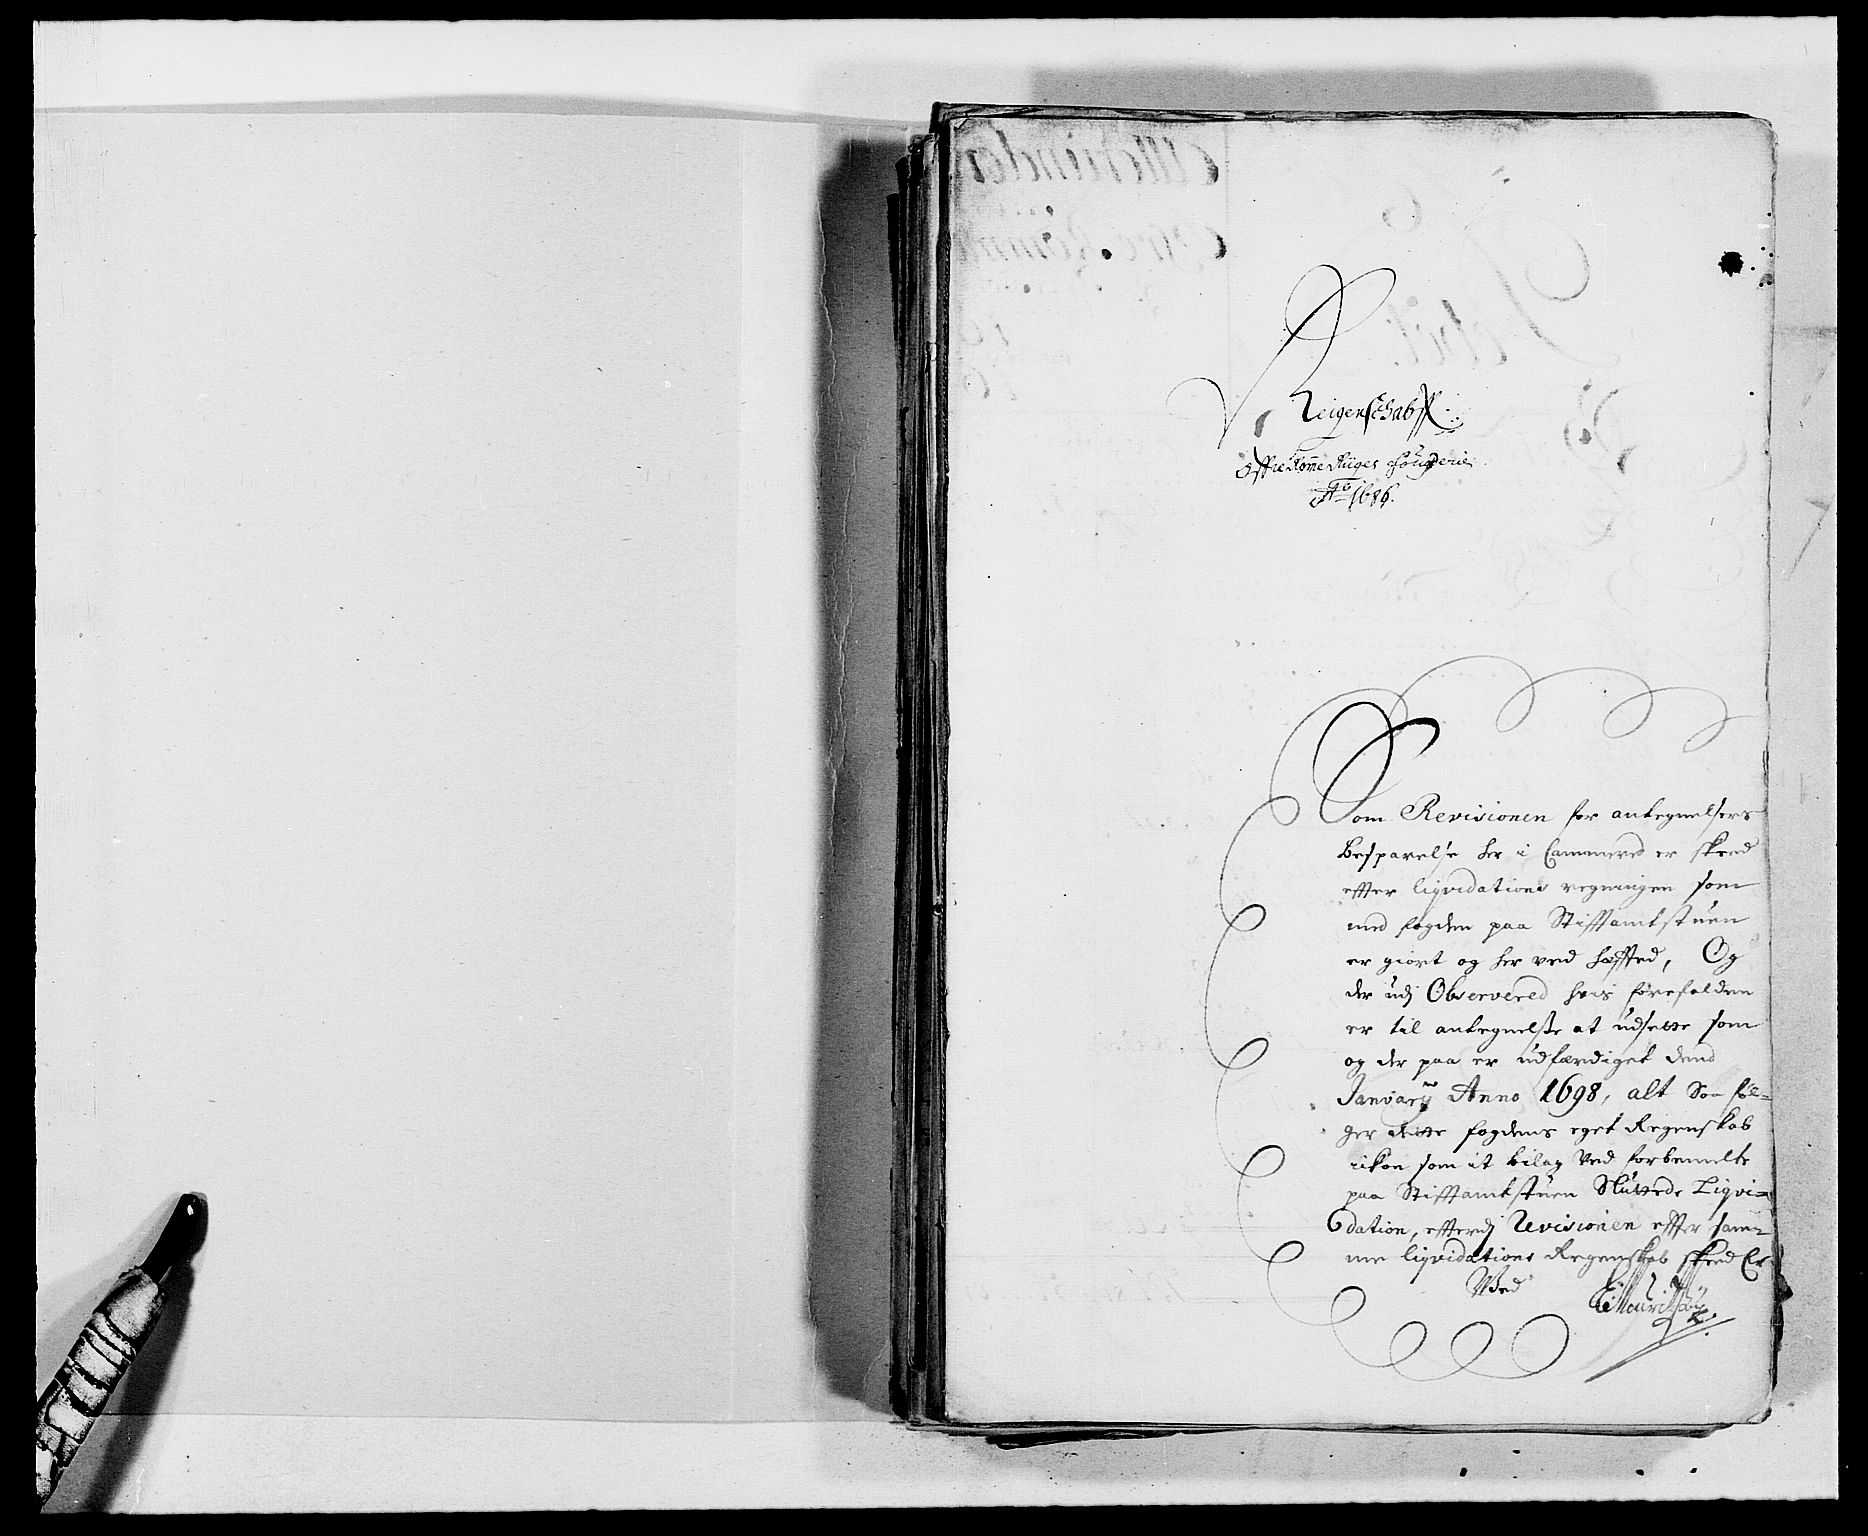 Reigenschabff
Offre Romeriiges fougderie
Ao 1686.
Som Revisionen for antegnelsers
besparelse her i Cammered er skeed
effter liqvidations regningen som
med fogden paa Stifftamtstuen
er giort og her ved heffted, Og
der udj Observered hvis forefalden
er til antegnelse at udsette som
og der paa er udfærdiget dend
Januarij Anno 1698, alt Saa føl-
ger dette fogdens eget Regenskab
ikon som it bilag ved forbemelte
paa Stifftamtstuen Sluttede Liqvi-
dation, effterdj Revisionen effter sam-
me liqvidations Regenskab skeed Er
Ved